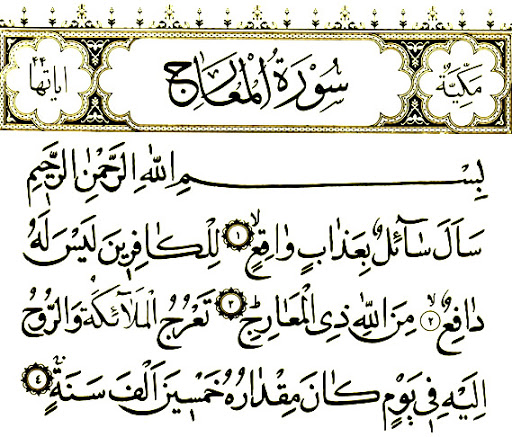 مَكِّيَّةٌ سُورَةُ الْمَعَارِجِ اٰيَاتُهَا ٤٤
بِسْمِ اللّٰهِ الرَّحْمٰنِ الرَّحِيمِ
سَاَلَ سَٓائِلٌ بِعَذَابٍ وَاقِعٍۙ ﴿١﴾ لِلْكَافِرِينَ لَيْسَ لَهُ
دَافِعٌۙ ﴿٢﴾ مِنَ اللّٰهِ ذِي الْمَعَارِجِۜ ﴿٣﴾ تَعْرُجُ الْمَلٰٓائِكَةُ وَالرُّوحُ
اِلَيْهِ فِي يَوْمٍ كَانَ مِقْدَارُهُ خَمْسِينَ اَلْفَ سَنَةٍۚ ﴿٤﴾